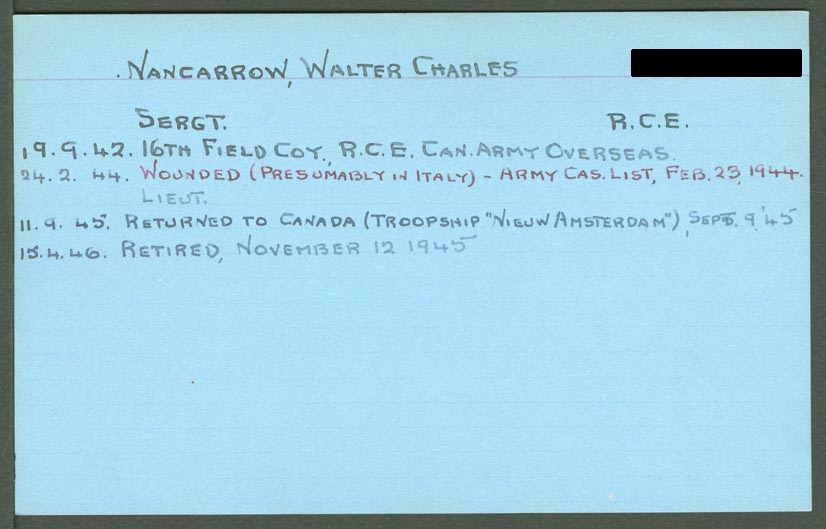 NANCARROW, WALTER CHARLES
SERGT. R.C.E.
19.9.42. 16TH FIELD COY., R.C.E. CAN. ARMY OVERSEAS.
24.2.44. WOUNDED (PRESUMABLY IN ITALY) - ARMY CAS. LIST, FEB. 23, 1944.
LIEUT.
11.9.45. RETURNED TO CANADA (TROOPSHIP "NIEUW AMSTERDAM"), SEPT. 9, '45
15.4.46. RETIRED, NOVEMBER 12 1945